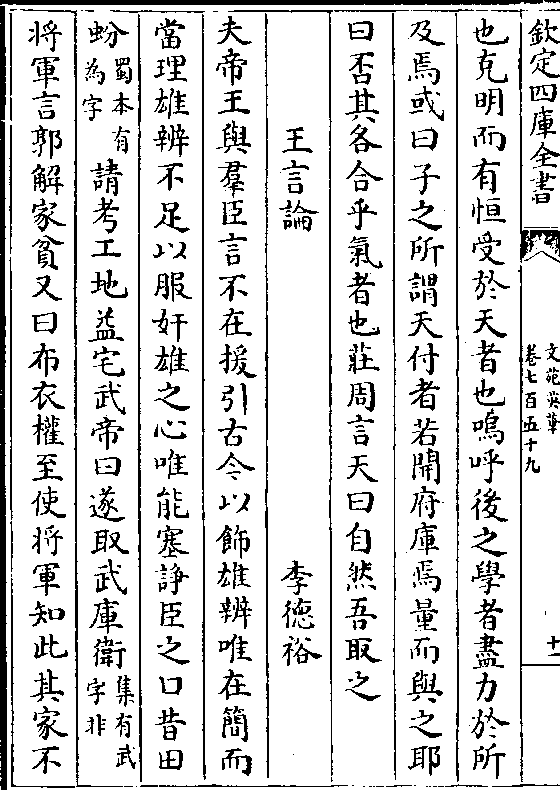 欽定四庫全書
文苑英華
卷七百五十九
十一
也克明而有恒受於天者也嗚呼後之學者盡力於所
及焉或曰子之所謂天付者若開府庫焉量而與之耶
曰否其各合乎氣者也莊周言天曰自然吾取之
王言論 李德裕
夫帝王與羣臣言不在援引古今以飾雄辨唯在簡而
當理雄辨不足以服奸雄之心唯能塞諍臣之口昔田
蚡蜀本有為字請考工地益宅武帝曰遂取武庫衛集有武字非
将軍言郭解家貧又曰布衣權至使将軍知此其家不